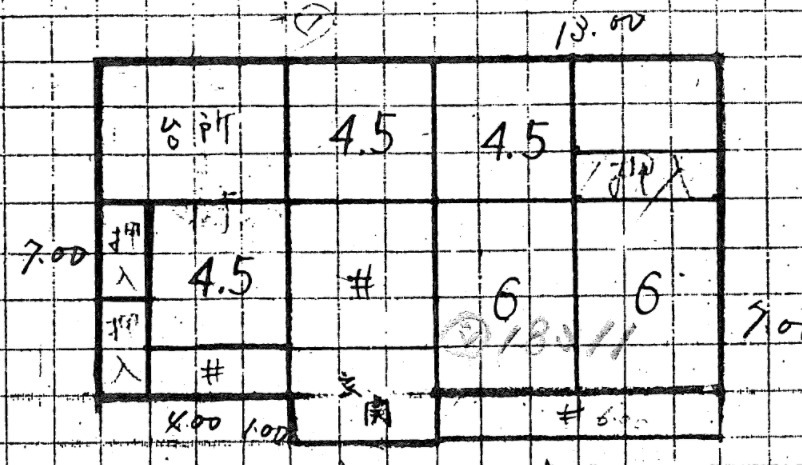 ①
13.00
台所
4.5
4.5
押入
7.00
押入
4.5
#
6
6
押入
#
玄関
4.00
1.00
#